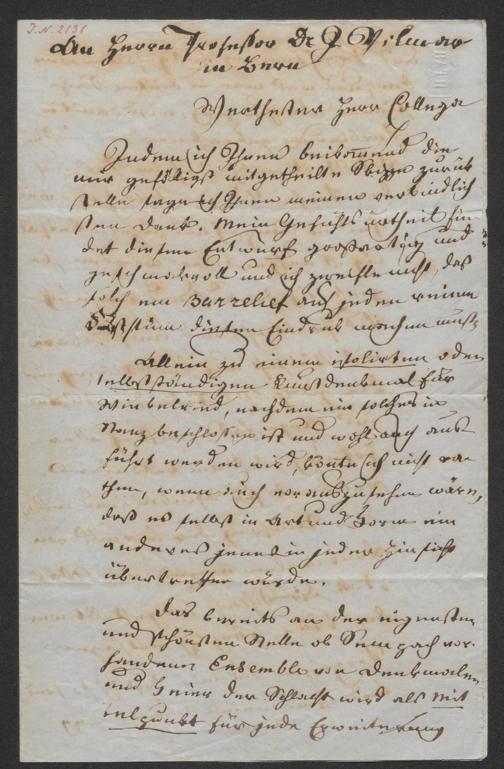 J. N. 2131
An Herrn Professor Dr J Vilmar
in Bern
Werthester Herr Collega
Indem ich Ihnen beikommend die
mir gefälligst mitgetheilte Skizze zurük
stelle sage ich Ihnen meinen verbindlich
sten Dank. Mein Gefühlsurtheil fin
det diesen Entwurf großartig und
geschmakvoll und ich zweifle nicht, daß
solch ein Barrelief auf jeden
diesen Eindruk machen muß.
Allein zu einem isolirten oder
selbstständigen Kunstdenkmal für
Winkelried, nachdem ein solches in
Stanz beschlossen ist und wohl auch aus
führt werden wird, könnte ich nicht ra
then, wenn auch vorauszusehen wäre,
daß es selbst in Art und Form ein
anderes jenes in jeder Hinsicht
übertreffen würde.
Das bereits an der eigensten
und schönsten Stelle ob Sempach vor
handene Ensemble von Denkmalen
und Feier der Schlacht wird als Mit
telpunkt für jede Erweiterung